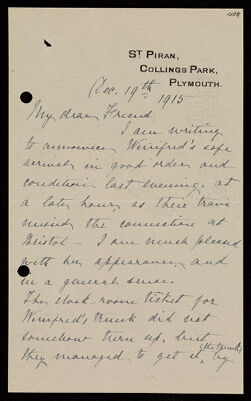 ST PIRAN,
COLLINGS PARK,
PLYMOUTH.
Dec. 19th 1915
My dear Friend,
I am writing
to announce Winifred's safe
arrival, in good order and
condition last evening, at
a late hour, as their train
missed the connection at
Bristol – I am much pleased
with her appearance, and
in a general sense.
The cloak room ticket for
Winifred's trunk did not
somehow turn up, but
(the trunk)
they managed to get it, by